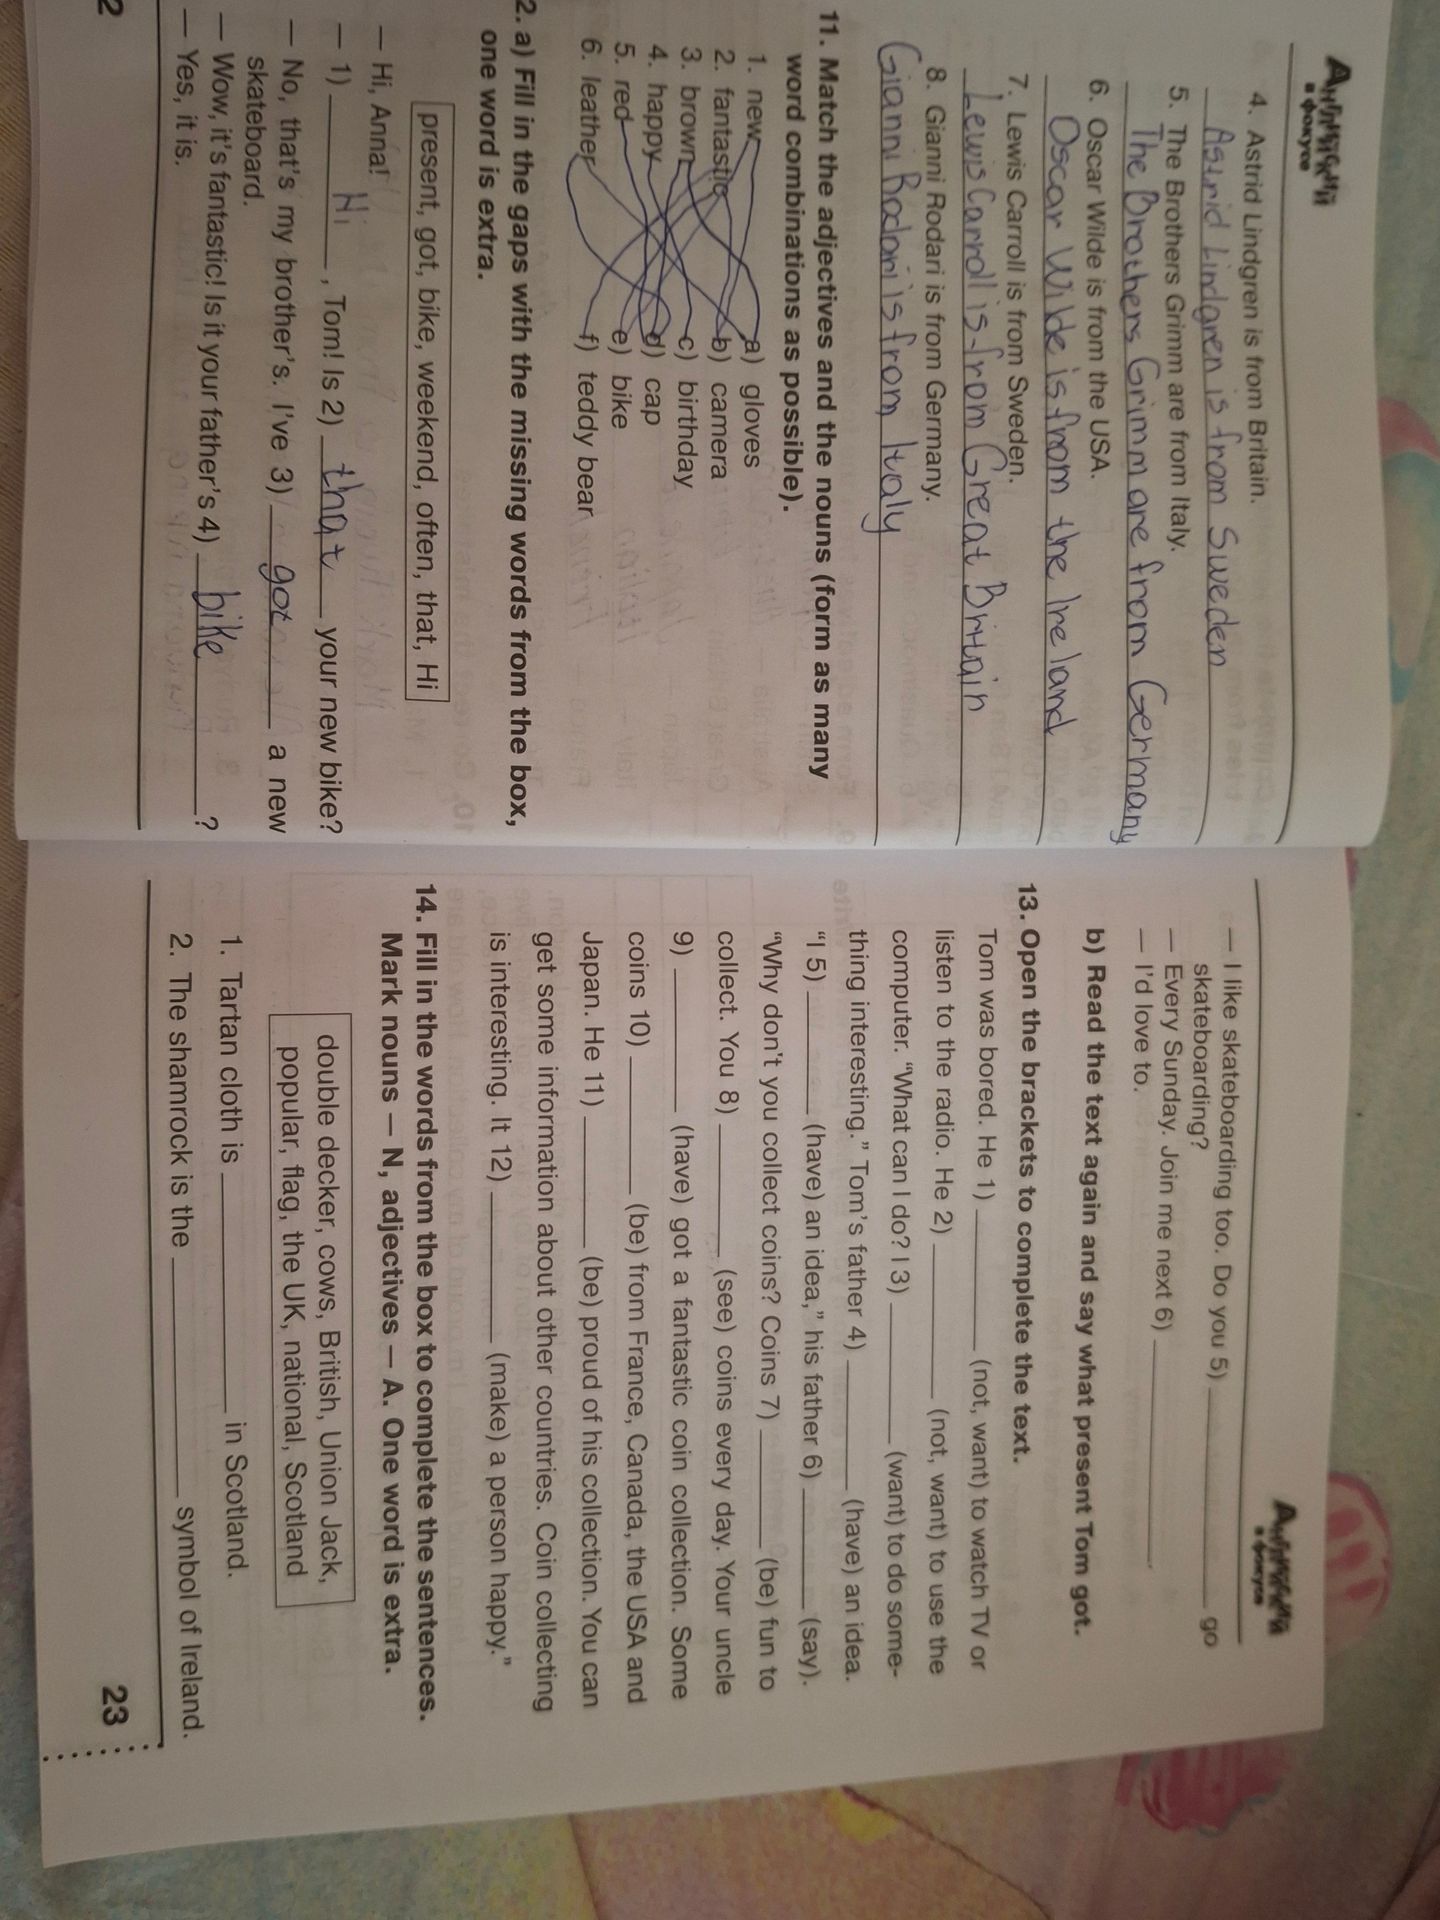 Английский
в фокусе
4. Astrid Lindgren is from Britain.
Astrid Lindgren is from Sweden
5. The Brothers Grimm are from Italy.
The Brothers Grimm are from Germany
6. Oscar Wilde is from the USA.
Oscar Wilde is from the Ireland
7. Lewis Carroll is from Sweden.
Lewis Carrol is from Great Britain
8. Gianni Rodari is from Germany.
Gianni Rodari is from Italy
11. Match the adjectives and the nouns (form as many
word combinations as possible).
1. new a) gloves
2. fantastic b) camera
3. brown c) birthday
4. happy d) cap
5. red e) bike
6. leather f) teddy bear
2. a) Fill in the gaps with the missing words from the box,
one word is extra.
present, got, bike, weekend, often, that, Hi
— Hi, Anna!
— 1) Hi , Tom! Is 2) that your new bike?
— No, that's my brother's. I've 3) got a new
skateboard.
— Wow, it's fantastic! Is it your father's 4) bike ?
— Yes, it is.
2
Английский
в фокусе
— I like skateboarding too. Do you 5) ____ go
skateboarding?
— Every Sunday. Join me next 6) ____.
— I'd love to.
b) Read the text again and say what present Tom got.
13. Open the brackets to complete the text.
Tom was bored. He 1) ____ (not, want) to watch TV or
listen to the radio. He 2) ____ (not, want) to use the
computer. “What can I do? I 3) ____ (want) to do some-
thing interesting.” Tom's father 4) ____ (have) an idea.
“I 5) ____ (have) an idea,” his father 6) ____ (say).
“Why don't you collect coins? Coins 7) ____ (be) fun to
collect. You 8) ____ (see) coins every day. Your uncle
9) ____ (have) got a fantastic coin collection. Some
coins 10) ____ (be) from France, Canada, the USA and
Japan. He 11) ____ (be) proud of his collection. You can
get some information about other countries. Coin collecting
is interesting. It 12) ____ (make) a person happy.”
14. Fill in the words from the box to complete the sentences.
Mark nouns — N, adjectives — A. One word is extra.
double decker, cows, British, Union Jack,
popular, flag, the UK, national, Scotland
1. Tartan cloth is ____ in Scotland.
2. The shamrock is the ____ symbol of Ireland.
23